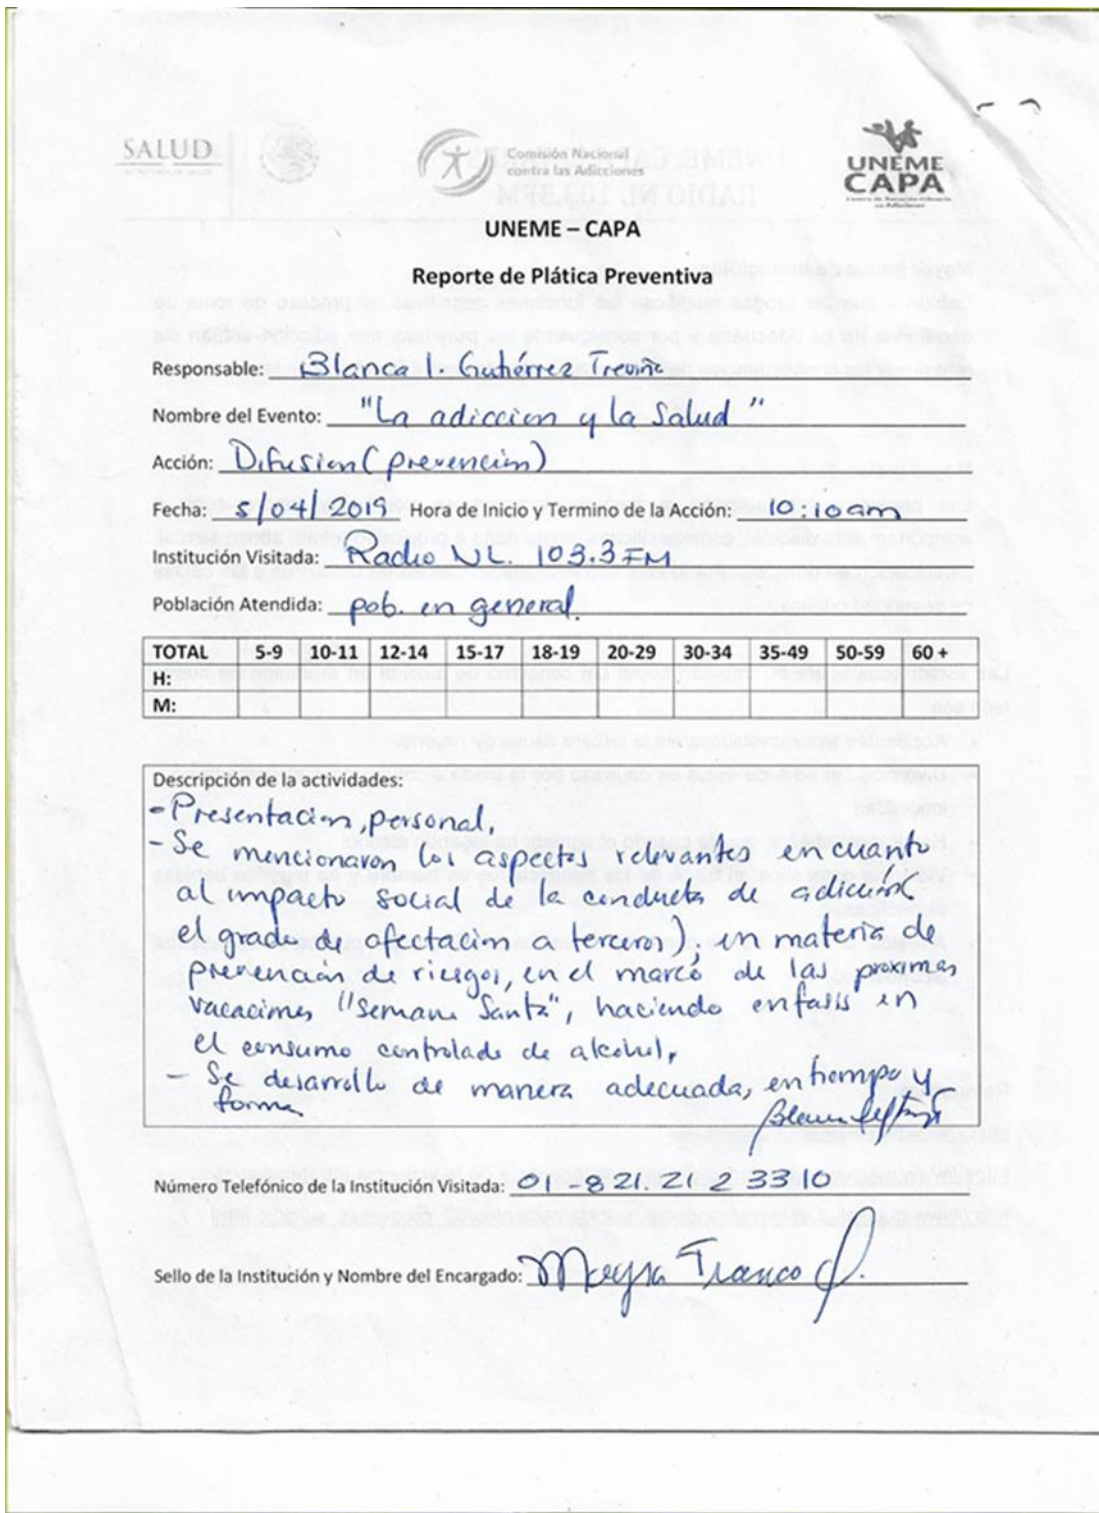 SALUD
Comisión Nacional
contra las Adicciones
UNEME
CAPA
UNEME – CAPA
Reporte de Plática Preventiva
Responsable: Blanca I. Gutiérrez Treviño
Nombre del Evento: "La adiccion y la Salud"
Acción: Difusion (prevención)
Fecha: 5/04/2019 Hora de Inicio y Termino de la Acción: 10:10am
Institución Visitada: Radio NL. 103.3 FM
Población Atendida: pob. en general.
TOTAL 5-9 10-11 12-14 15-17 18-19 20-29 30-34 35-49 50-59 60 +
H:
M:
Descripción de la actividades:
- Presentacion, personal,
- Se mencionaron los aspectos relevantes en cuanto
al impacto social de la conducta de adicción
el grado de afectación a terceros), en materia de
prevención de riesgos, en el marco de las proximas
vacaciones "Semana Santa", haciendo enfasis en
el consumo controlado de alcohol,
- Se desarrollo de manera adecuada, en tiempo y
forma
Número Telefónico de la Institución Visitada: 01-821.212 3310
Sello de la Institución y Nombre del Encargado: Mayra Franco